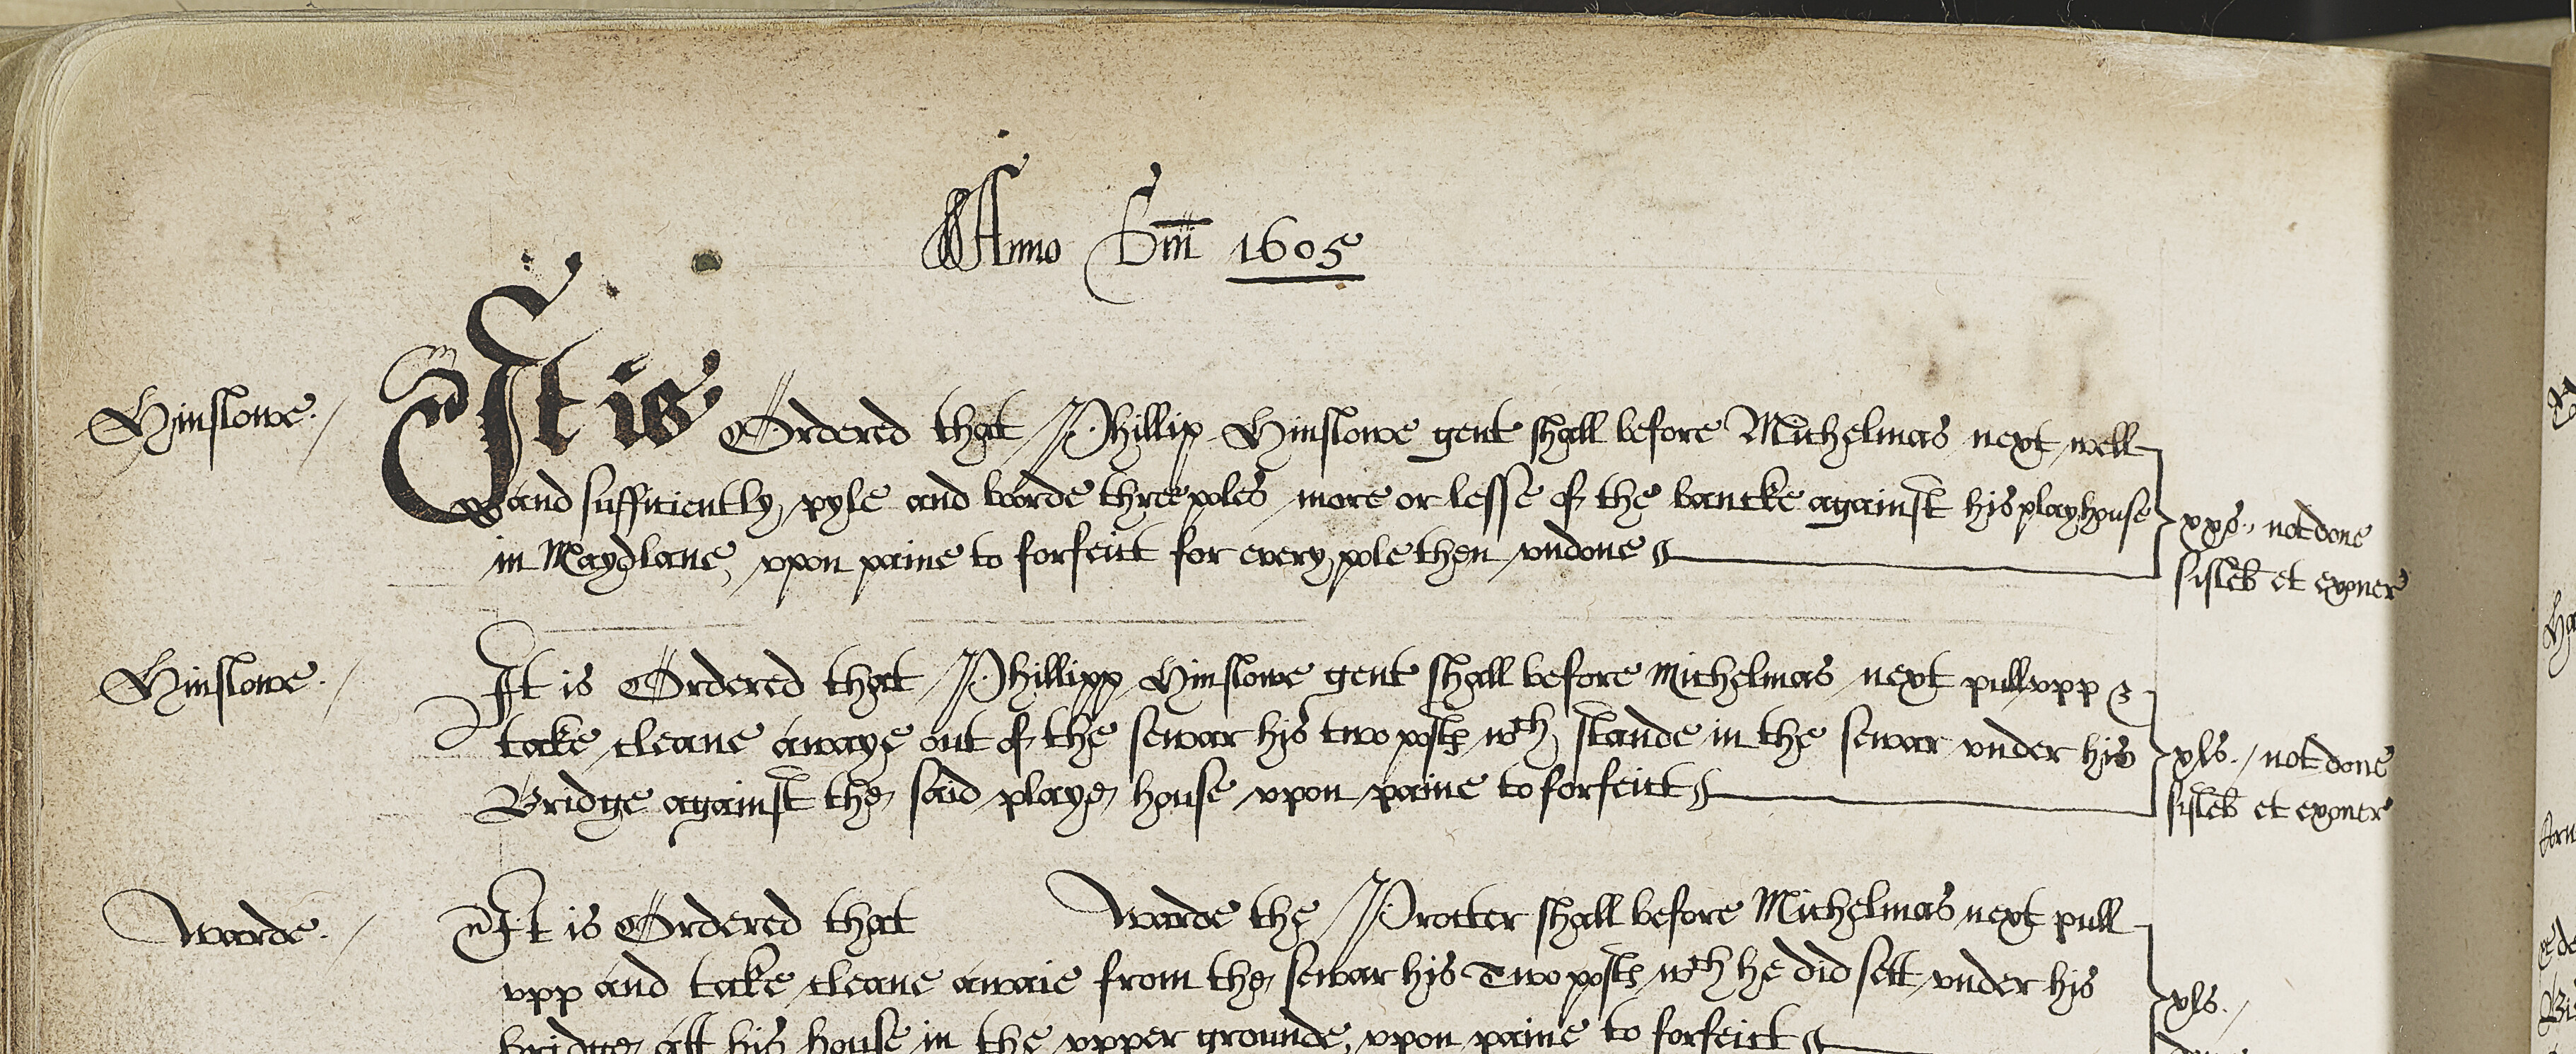 Anno Dm̄ 1605
Hinslowe. /
It is Ordered that Phillip Hinslowe gent shall before Michelmas next well
and sufficiently pyle and borde three poles more or lesse of the bancke against his playhouse
in Maydlane, vpon paine to forfeict for every pole then vndone
xxs. not done
Hinslowe. /
It is Ordered that Phillipp Hinslowe gent shall before Michelmas next pull vpp &
take cleane awaye out of the sewar his two postℯ wch stande in the sewar vnder his
Bridge against the said playe house vpon paine to forfeict
xls. / not done
Warde. /
It is Ordered that Warde the Protter shall before Michelmas next pull
vpp and take cleane awaie from the sewar his Two postℯ wch he did sett vnder his
bridge att his house in the vpper grounde, vpon paine to forfeict
xls. /